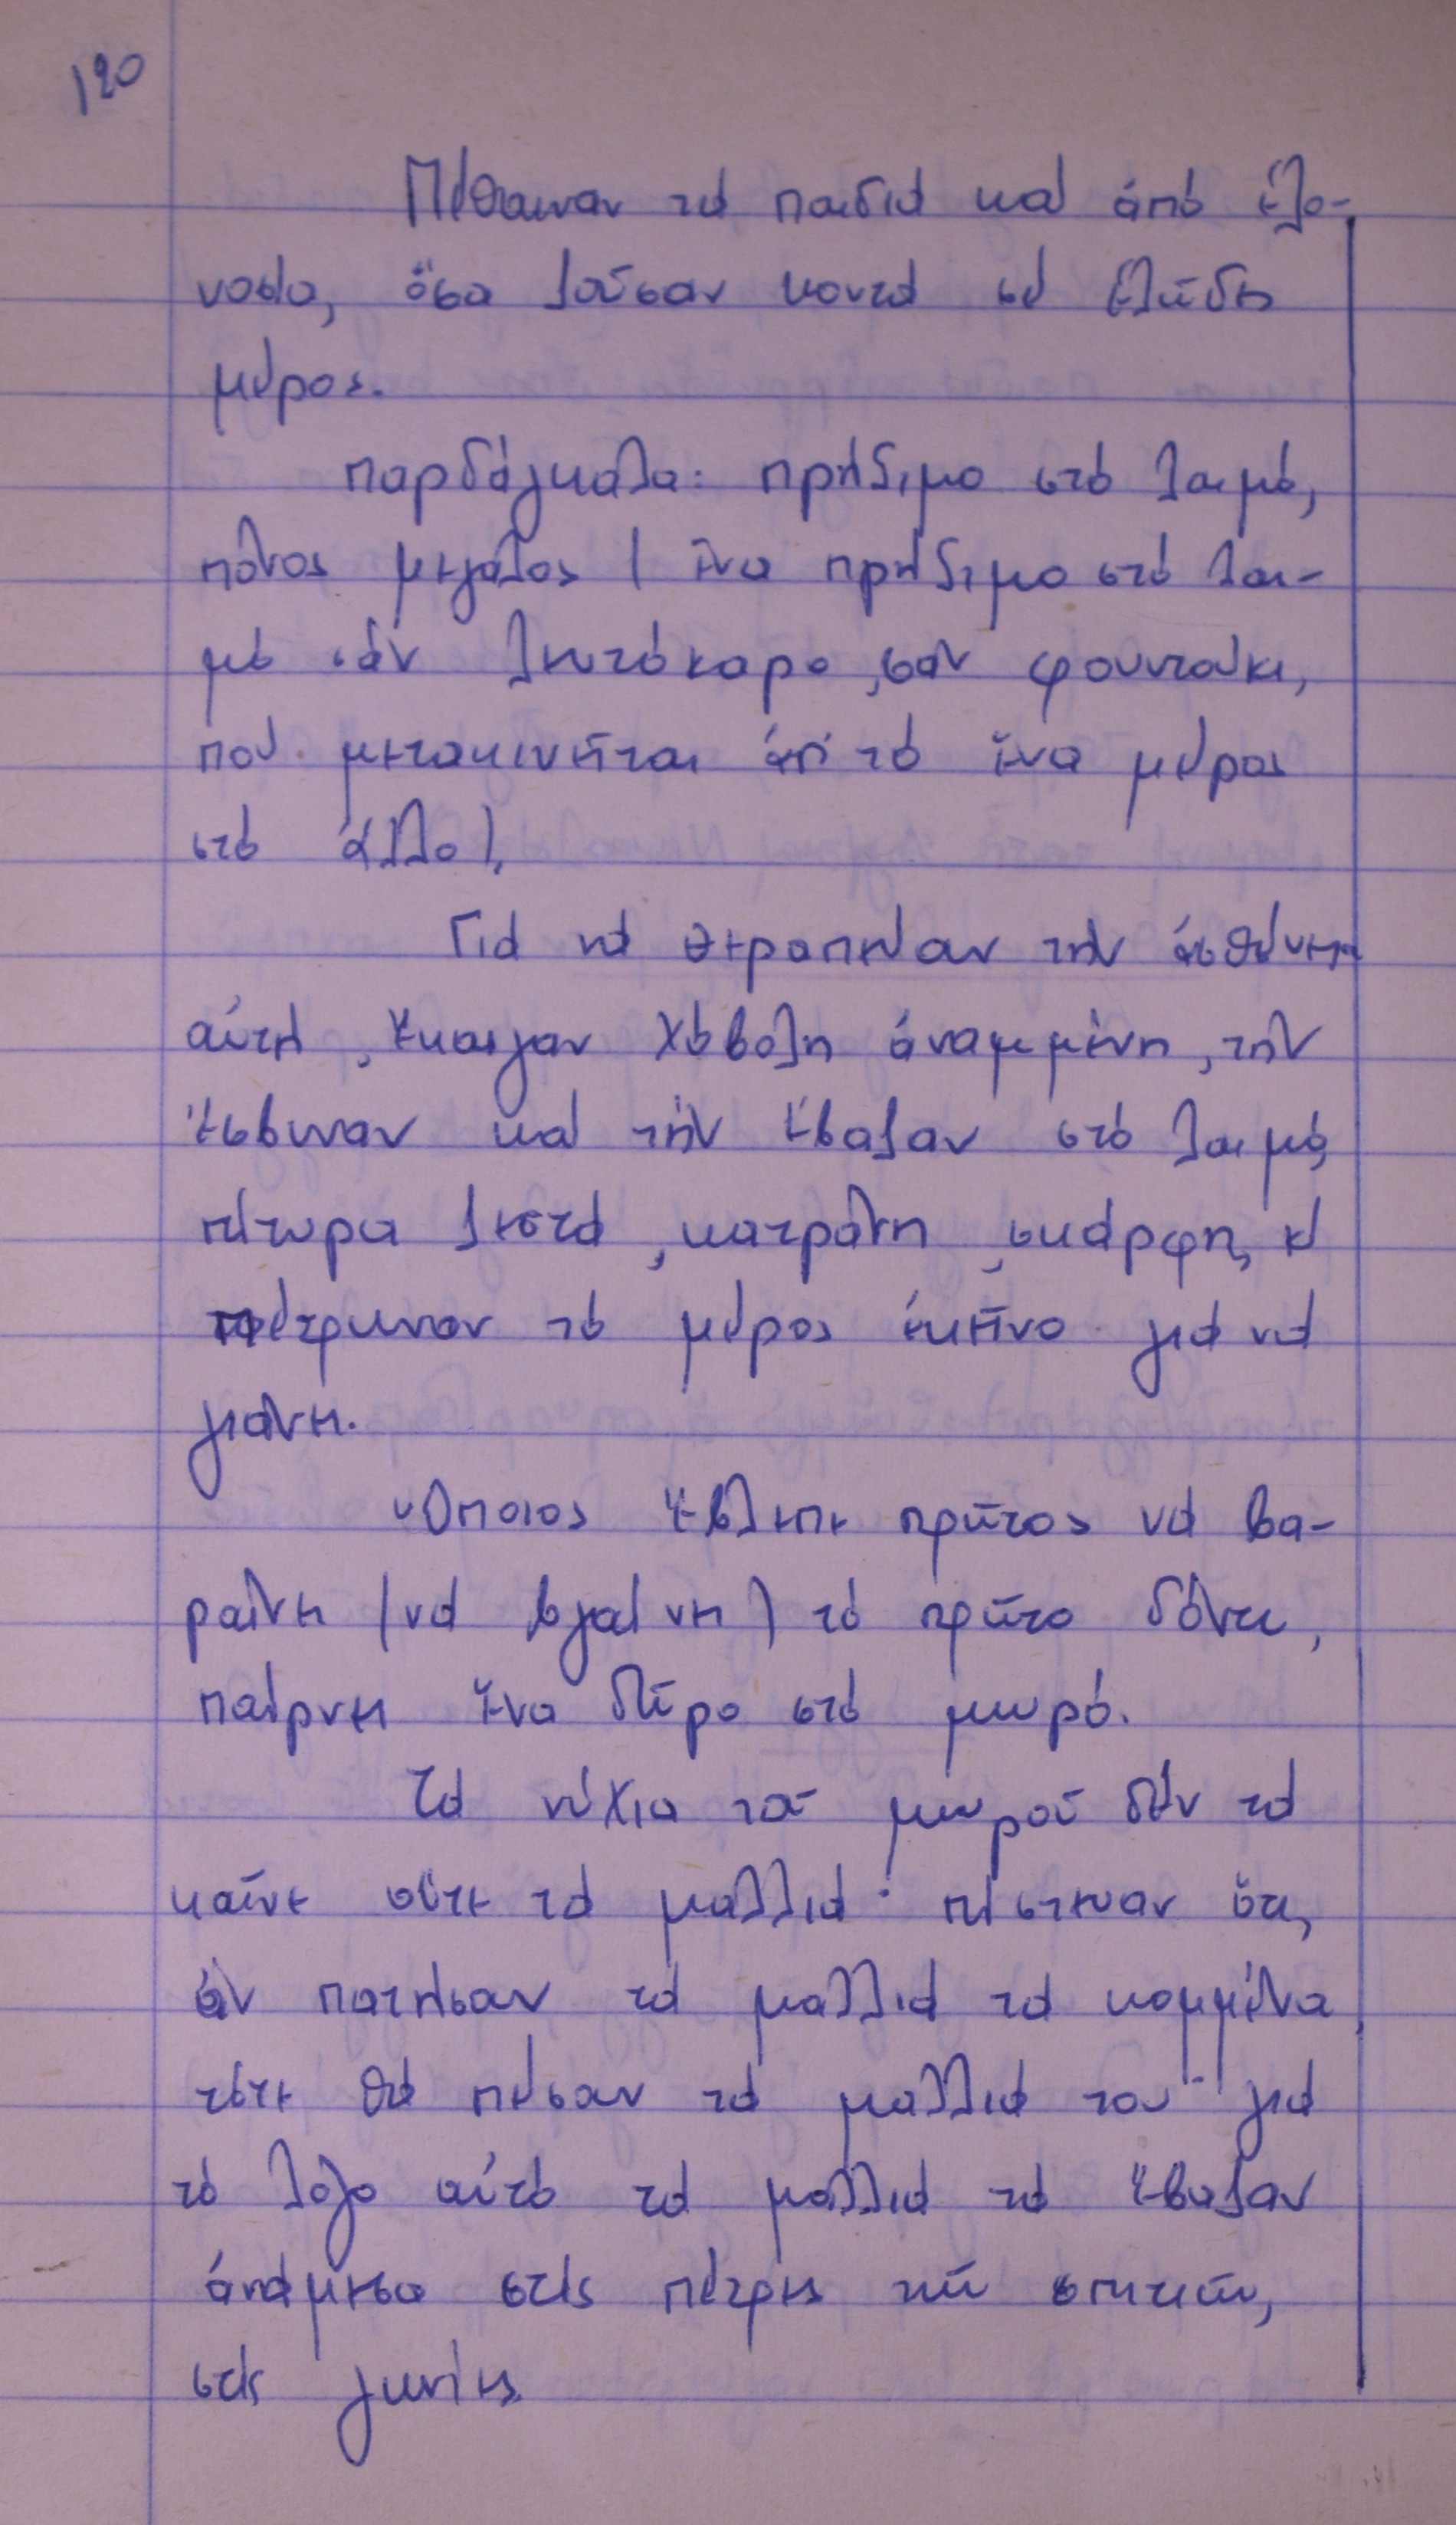 120
Πέθαιναν τά παιδιά καί ἀπό ἑλο-
νοσία, ὅσα ζοῦσαν κοντά σέ ἑλῶδες
μέρος.
παρδάγκαλα: πρήξιμο στό λαιμό,
πόνος μεγάλος (ἕνα πρήξιμο στό λαι-
μό σάν λεπτόκαρο, σάν φουντούκι,
πού μετακινεῖται ἀπ' τό ἕνα μέρος
στό ἄλλο).
Γιά νά θεραπεύσαν τήν ἀσθένεια
αὐτή, ἔκαιγαν χόβολη ἀναμμένη, τήν
ἔσβυναν καί τήν ἔβαζαν στό λαιμό,
πίτυρα ζεστά, κατράνη, σκάρφη, κ'
πέτρωναν τό μέρος ἐκεῖνο γιά νά
γιάνει.
Ὅποιος ἔβλεπε πρῶτος νά βα-
ραίνει (νά βγαίνει) τό πρῶτο δόντι,
παίρνει ἕνα δῶρο στό μωρό.
Τά νύχια τοῦ μωροῦ δέν τά
καῖνε οὔτε τά μαλλιά· πίστευαν ὅτι,
ἄν πατήσαν τά μαλλιά τά κομμένα,
τότε θά πέσαν τά μαλλιά του· γιά
τό λόγο αὐτό τά μαλλιά τά ἔβαζαν
ἀνάμεσα στίς πέτρες τῶν σπιτιῶν,
στίς γωνίες